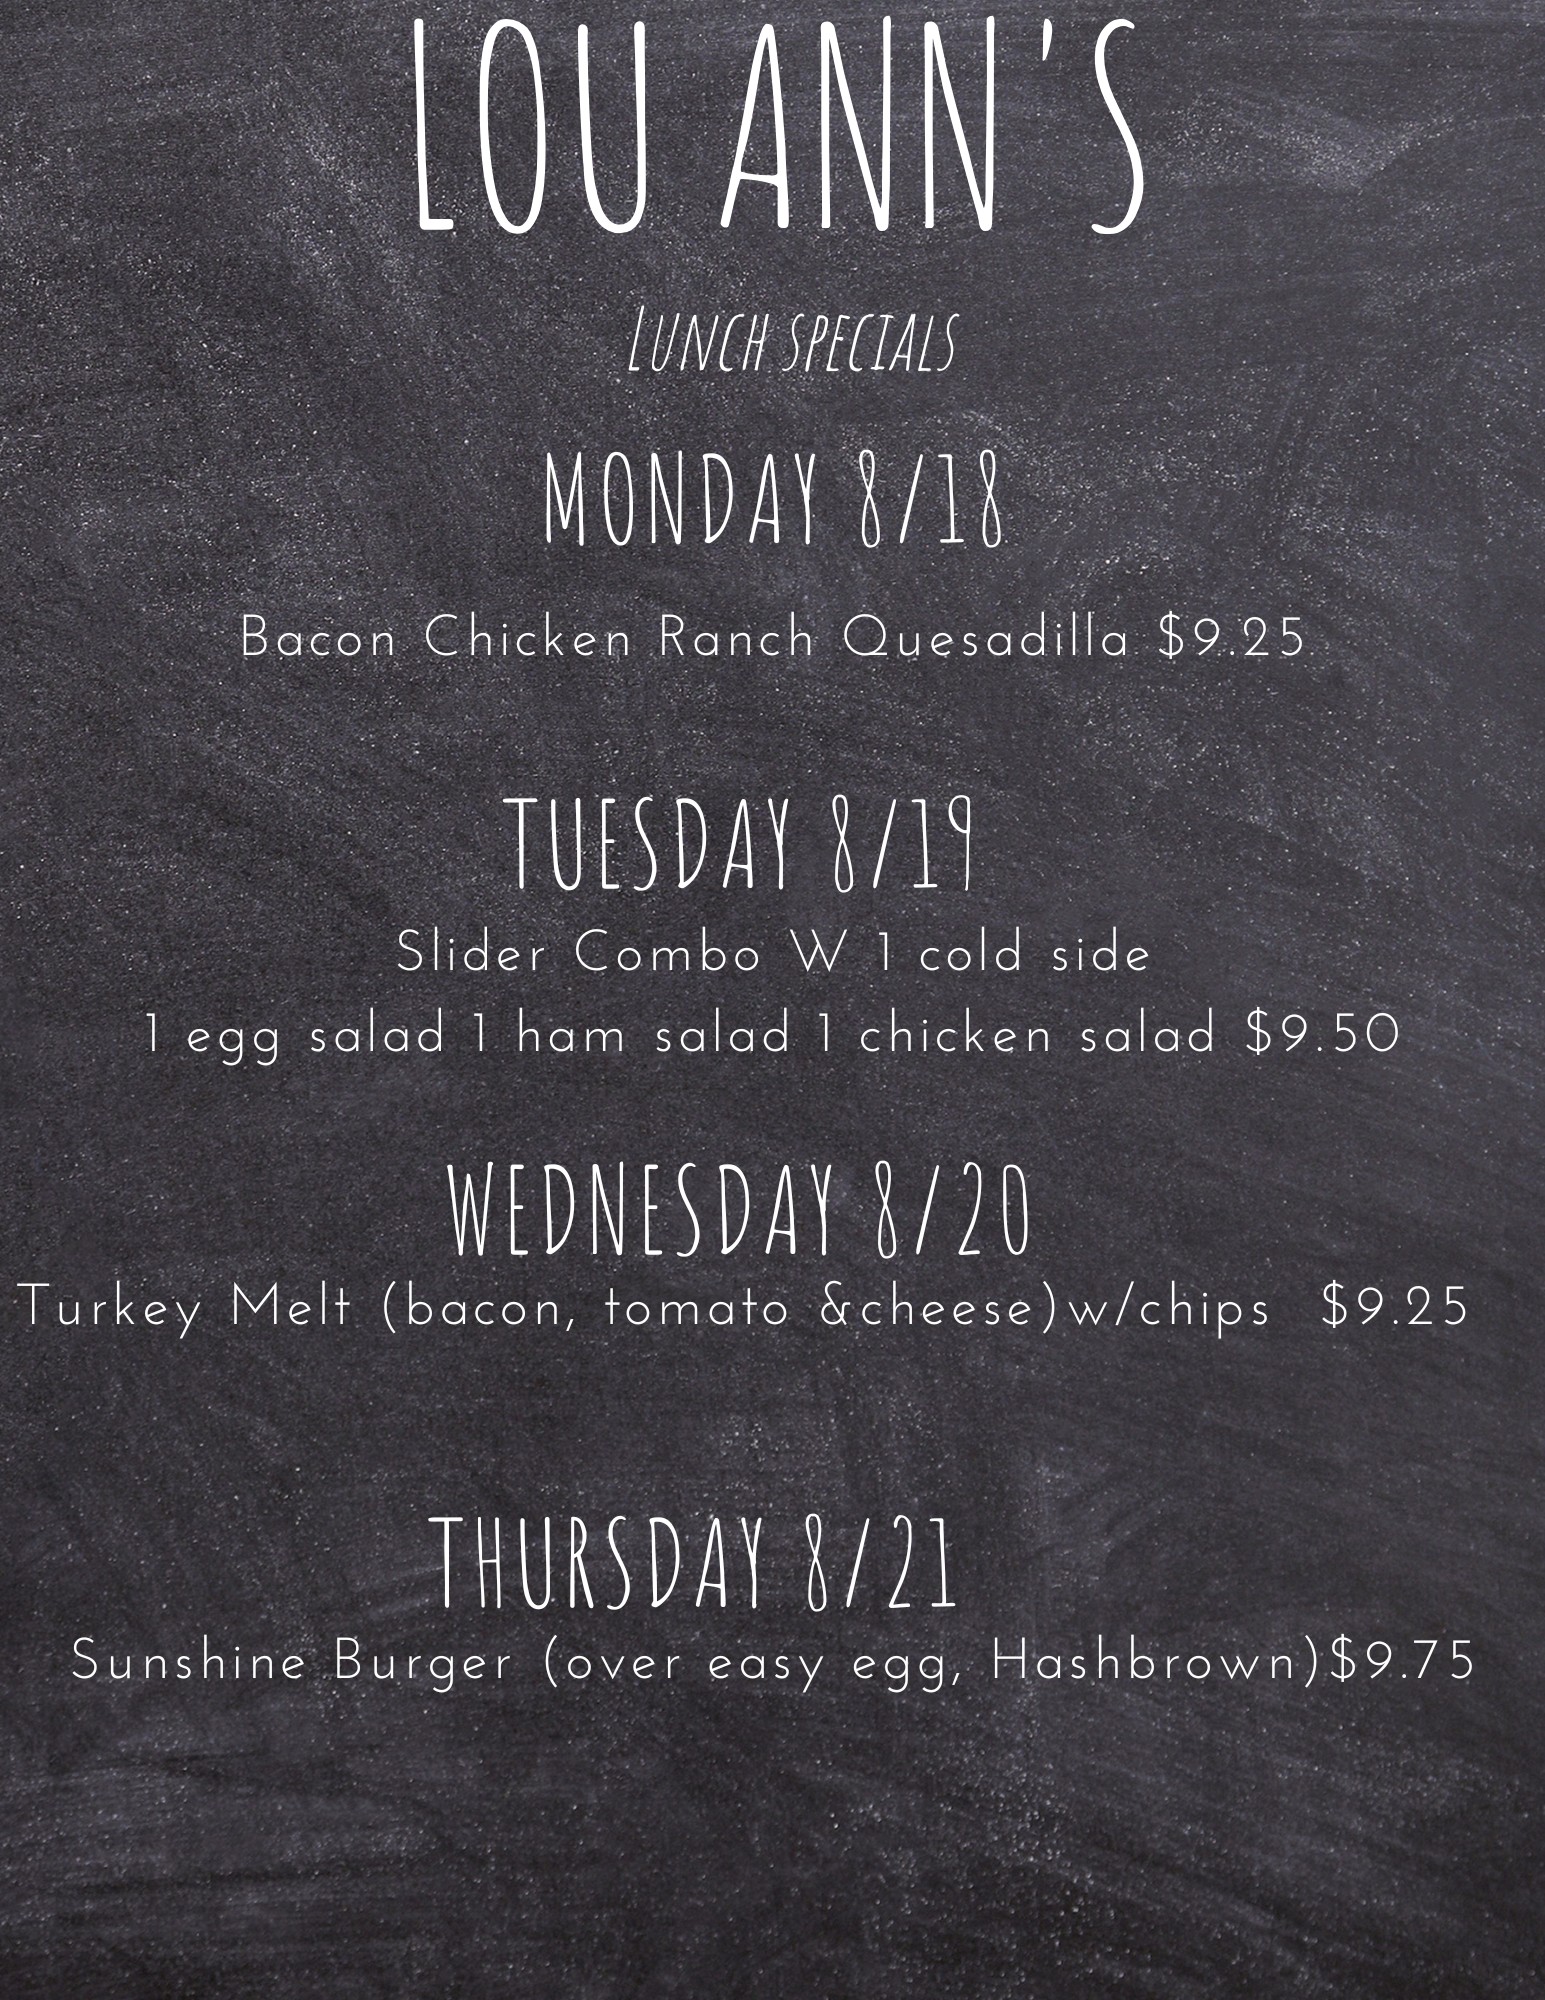 LOU ANN'S
LUNCH SPECIALS
MONDAY 8/18
Bacon Chicken Ranch Quesadilla $9.25
TUESDAY 8/19
Slider Combo W 1 cold side
1 egg salad 1 ham salad 1 chicken salad $9.50
WEDNESDAY 8/20
Turkey Melt (bacon, tomato &cheese)w/chips $9.25
THURSDAY 8/21
Sunshine Burger (over easy egg, Hashbrown)$9.75